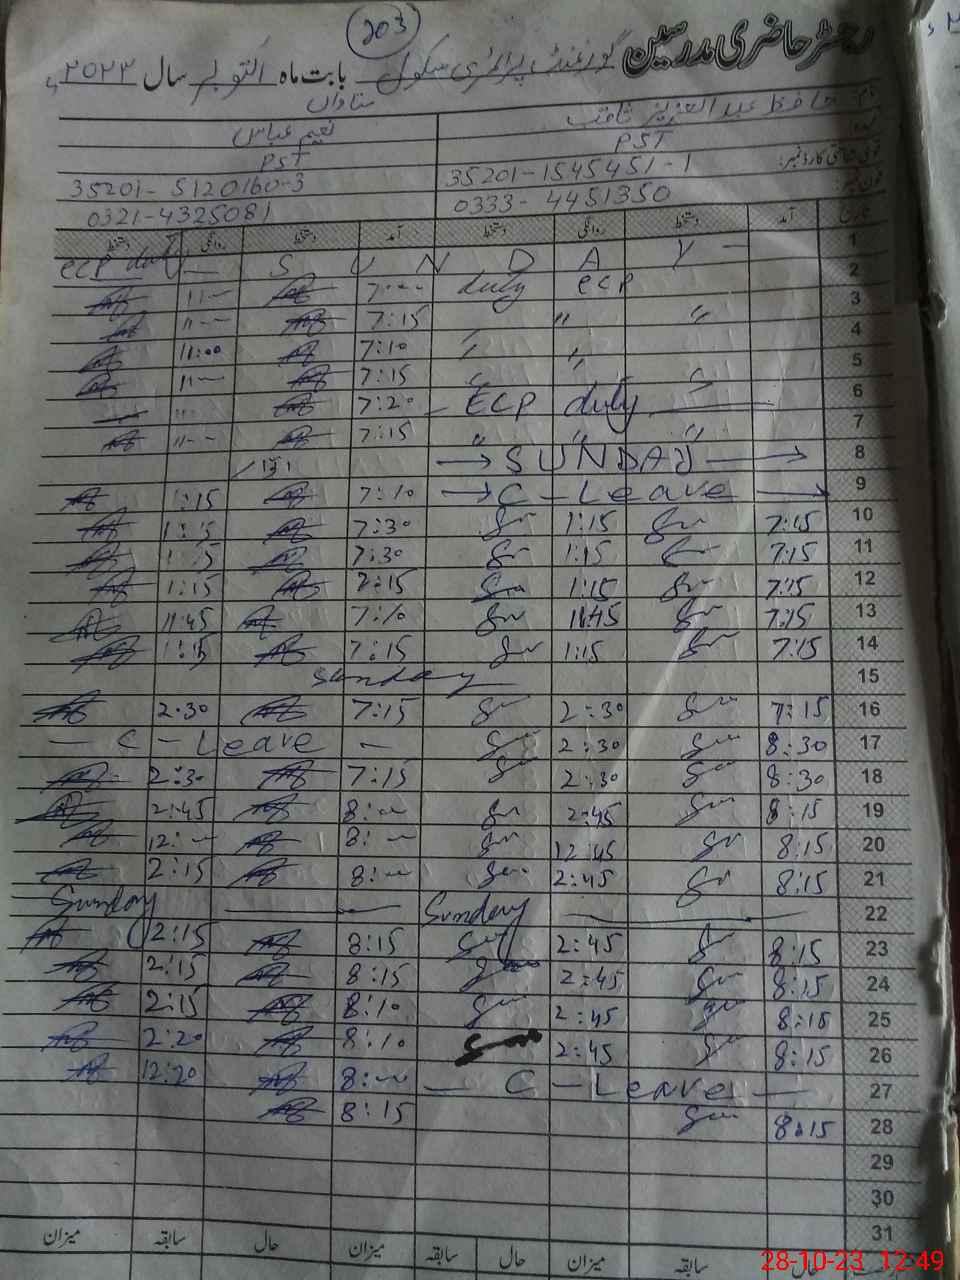 203
رجسٹر حاضری مدرسین گورنمنٹ پرائمری سکول بابت ماہ اکتوبر سال ۲۰۲۳ء
حافظ عبدالعزیز ثاقب نعیم عباس
PST PST
قومی شناختی کارڈ نمبر: 35201-1545451-1 35201-5120160-3
فون نمبر: 0333-4451350 0321-4325081
تاریخ آمد دستخط روانگی دستخط آمد دستخط روانگی دستخط
1 S U N D A Y
2 ECP duty 7:00 11-
3 " " 7:15 11--
4 " " 7:10 11:00
5 " " 7:15 11-
6 ECP duty 7:20
7 " " " 7:15 11--
8 SUNDAY
9 C-Leave 7:10 1:15
10 7:15 1:15 7:30 1:15
11 7:15 1:15 7:30 1:15
12 7:15 1:15 1:15
13 7:15 11:45 7:10 11:45
14 7:15 1:15 7:15 1:15
15 Sunday
16 7:15 2:30 7:15 2:30
17 8:30 2:30 - C - Leave -
18 8:30 2:30 7:15 2:30
19 8:15 2:45 8:00 2:45
20 8:15 12:45 8:00 12:00
21 8:15 2:45 8:00 2:15
22 Sunday Sunday
23 8:15 2:45 8:15 2:15
24 8:15 2:45 8:15 2:15
25 8:15 2:45 8:10 2:15
26 8:15 2:45 8:10 2:20
27 C-Leave 8:00 12:20
28 8:15 8:15
29
30
31
حال سابقہ میزان حال سابقہ میزان حال سابقہ میزان
28-10-23 12:49